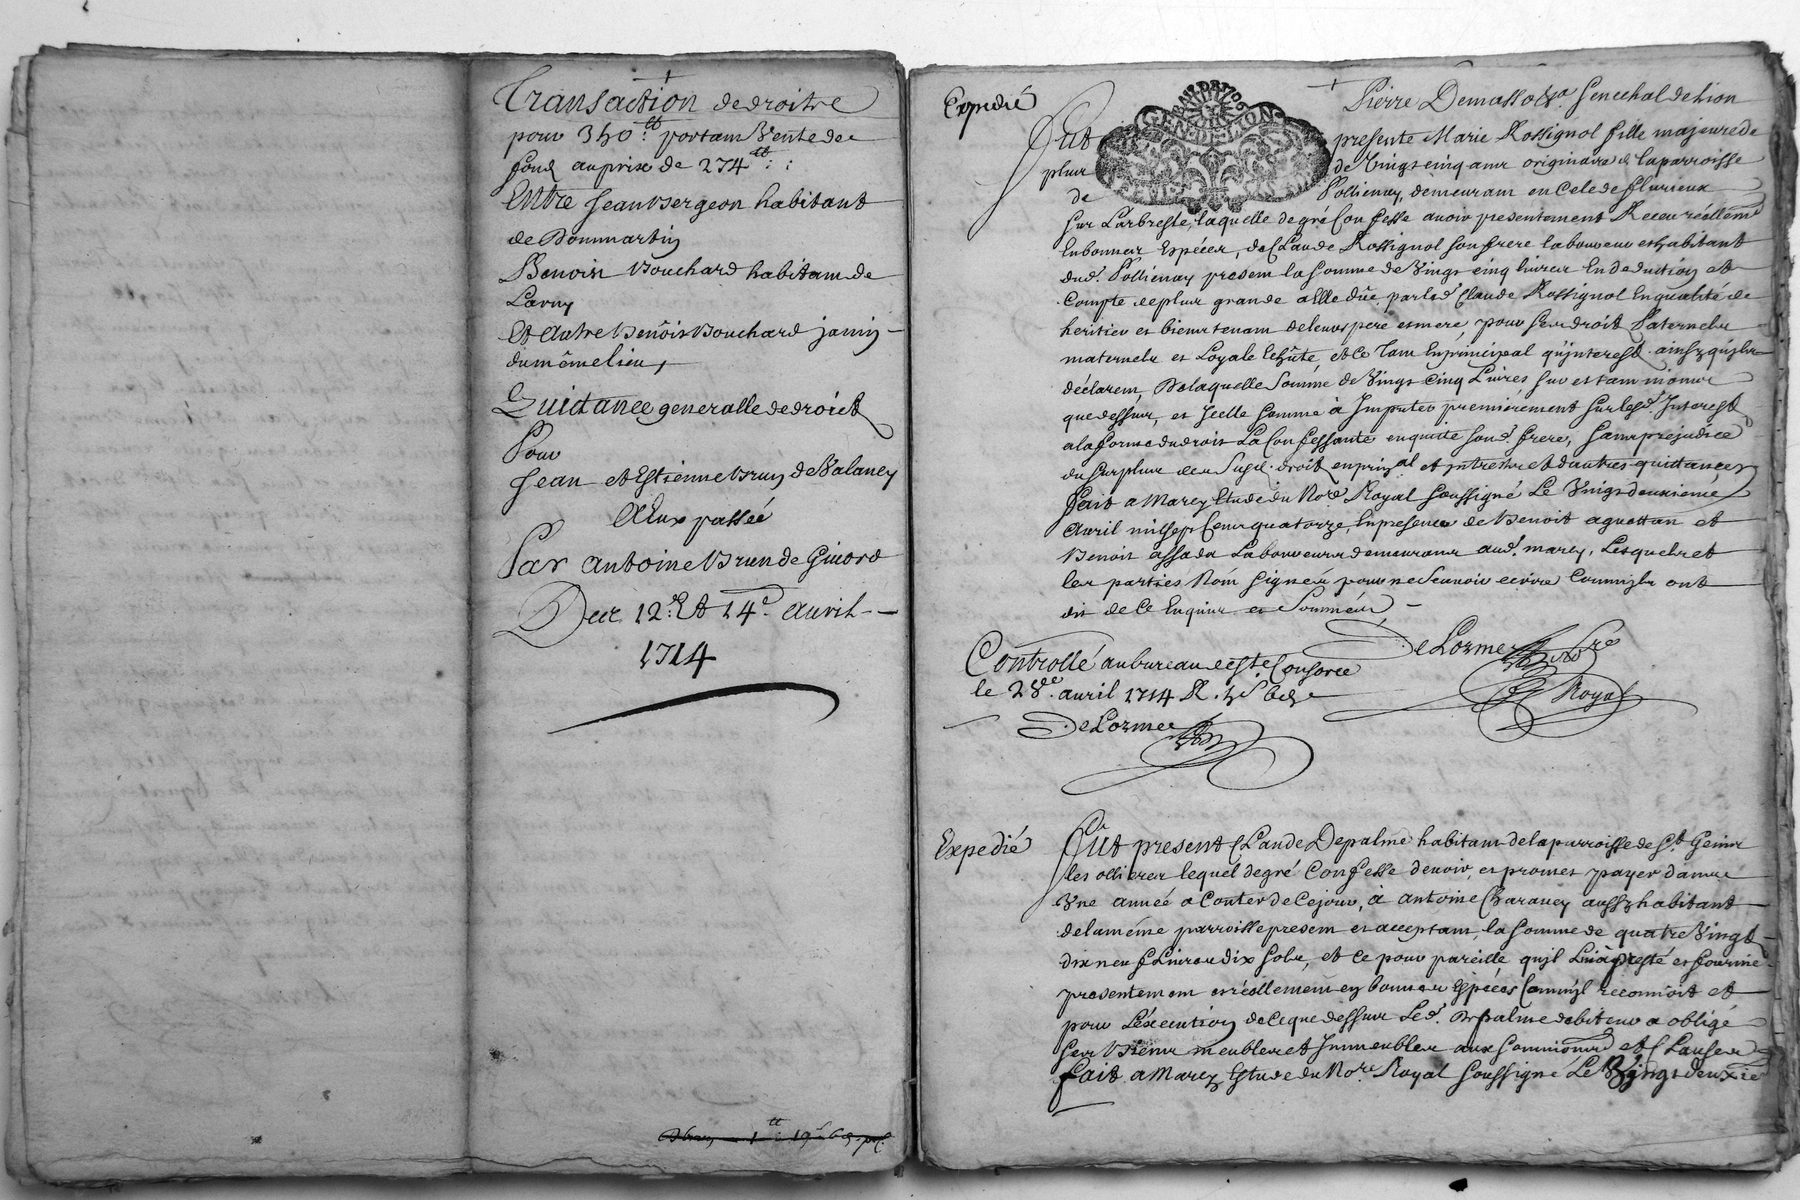 Transaction de droitre
pour 340 ₶ portant Vente de
fond au prix de 274 ₶ : :
Entre Jean Bergeon habitant
de Dommartin
Benoist Bouchard habitam de
Et Autre Benoist Bouchard jamin -
du même lieu,
Quictance generalle de droict
Pour
Jean et Estienne Brun de Valancy
A Eux passée
Par antoine Brun de Givord
Dece 12e Et 14e avril -
1714
Expedié
Pierre Demasso Sr Senechal de lion
GEN DE LION
Fut presente Marie Rossignol fille majeure de
plus de Vingt cinq ans originaire de la parroisse
de Pollienay, demeurant en Cele de flurieux
sur Larbresle, laquelle de gré Confesse avoir presentement Receu réellemt
En bonnes Espéces, de Claude Rossignol son frere laboureur et habitant
dud. Pollienay present la somme de Vingt cinq livres En deduction et
Compte de plus grande a Elle dûe par led. Claude Rossignol En qualité de
heritier et bienstenant de leurs pere et mere, pour ses droits Paternels
maternels et Loyale Echûte, et ce Tant En principal qu'interest ainsy qu'ils
déclarent, De laquelle somme de Vingt Cinq Livres
que dessus, et Icelle somme à Imputer premièrement sur lesd. Interest
a la forme du droit La Confessante en quitte sond. frere, sans prejudice
du surplus de ses Susd. droits en prinpal et interests et d'autres quictances
fait a Marcy Etude du Nore Royal soussigné Le Vingt deuxieme
Avril mil sept Cent quatorze, En presence de Benoit aguettan et
Benoit assada Laboureurs demeurans aud. marcy, Lesquels et
les parties N'ont signé pour ne Scavoir ecrire Comm'ils ont
dit de Ce Enquis et Sommés -
DeLorme Nore
Royal
Controllé au bureau de Ste Consorce
le 28e avril 1714 R. 5s 6d
DeLorme
Expedié
Fût present Claude Depalme habitant de la parroisse de St Genis
les ollieres lequel de gré Confesse devoir et promet payer dans
Vne année a Conter de Ce jour, à antoine Charavey aussy habitant
de la méme parroisse present et acceptant, la somme de quatre Vingt
dix neuf Livres dix sols, et ce pour pareille qu'jl Luy à presté et fournie
presentement et réellement en bonnes Espéces Comm'jl reconnoit et
pour L'éxecution de Ce que dessus Led. Depalme debiteur a obligé
ses Biens meubles et Immeubles aux soumissions et Clauses
fait a Marcy Estude du Nore Royal Soussigné Le Vingt deuxie